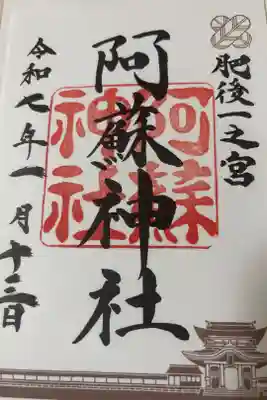 肥後一之宮
阿蘇神社
阿蘇
神社
令和七年一月十三日